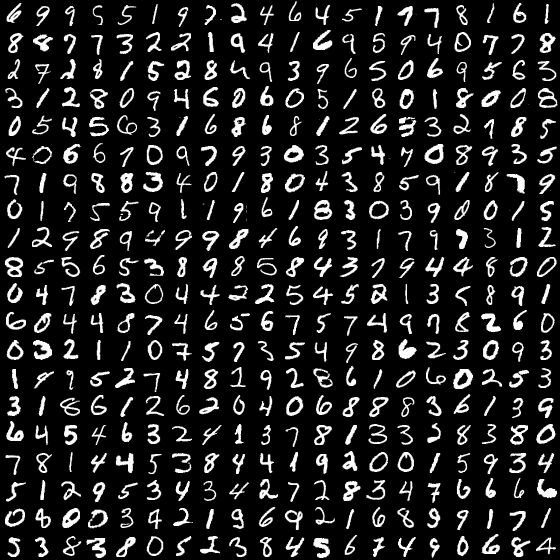 6 9 9 5 5 1 9 7 2 4 6 4 5 1 7 7 8 1 6 1
8 8 7 7 3 2 2 1 9 4 1 6 9 5 9 4 0 7 7 8
2 7 2 8 1 5 2 8 4 9 3 9 6 5 0 6 9 5 6 3
3 1 2 8 0 9 4 6 0 6 0 5 1 8 0 1 8 0 0 8
0 5 4 5 6 3 1 6 8 6 8 1 2 6 3 3 2 9 8 5
4 0 6 6 7 0 9 7 9 3 0 3 5 4 7 0 8 9 3 5
7 1 9 8 8 3 4 0 1 8 0 4 3 8 5 9 1 8 7 9
0 1 7 5 5 9 1 1 9 6 1 8 3 0 3 9 0 0 1 5
1 2 9 8 9 4 9 9 8 4 6 9 3 1 7 9 7 3 1 2
8 5 5 6 5 3 8 9 8 5 8 4 3 7 9 4 4 8 0 0
0 4 7 8 3 0 4 4 2 2 5 4 5 2 1 3 5 8 9 1
6 0 4 4 8 7 4 6 5 6 7 5 7 4 9 7 8 2 6 0
0 3 2 1 1 0 7 5 7 3 5 4 9 8 6 2 3 0 9 3
1 9 9 5 2 7 4 8 1 9 2 8 6 1 0 6 0 2 5 3
3 1 8 6 1 2 6 2 0 4 0 6 8 8 8 3 6 1 3 9
6 4 5 4 6 3 2 4 1 3 7 8 1 3 3 2 8 3 8 0
7 8 1 4 4 5 3 8 4 4 1 9 2 0 0 1 5 9 3 4
5 1 2 9 5 3 4 3 4 2 7 2 8 3 4 7 6 6 6 6
0 8 0 0 3 4 2 1 9 6 9 2 1 6 8 9 9 1 7 1
5 3 8 3 8 0 5 1 3 8 4 5 6 7 4 9 0 6 8 4